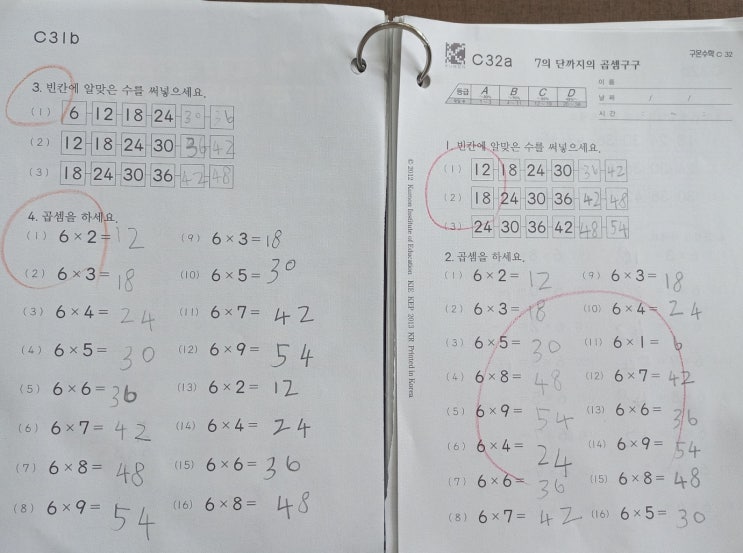 C31b
3. 빈칸에 알맞은 수를 써넣으세요.
(1) 6 12 18 24 30 36
(2) 12 18 24 30 36 42
(3) 18 24 30 36 42 48
4. 곱셈을 하세요.
(1) 6×2=12 (9) 6×3=18
(2) 6×3=18 (10) 6×5=30
(3) 6×4=24 (11) 6×7=42
(4) 6×5=30 (12) 6×9=54
(5) 6×6=36 (13) 6×2=12
(6) 6×7=42 (14) 6×4=24
(7) 6×8=48 (15) 6×6=36
(8) 6×9=54 (16) 6×8=48
© 2012 Kumon Institute of Education KIE KEP 2013 KR Printed in Korea
KUMON C32a 7의 단까지의 곱셈구구 구몬수학 C 32
등급 A B C D
이름
날짜 / /
시간 : ~ :
1. 빈칸에 알맞은 수를 써넣으세요.
(1) 12 18 24 30 36 42
(2) 18 24 30 36 42 48
(3) 24 30 36 42 48 54
2. 곱셈을 하세요.
(1) 6×2=12 (9) 6×3=18
(2) 6×3=18 (10) 6×4=24
(3) 6×5=30 (11) 6×1=6
(4) 6×8=48 (12) 6×7=42
(5) 6×9=54 (13) 6×6=36
(6) 6×4=24 (14) 6×9=54
(7) 6×6=36 (15) 6×8=48
(8) 6×7=42 (16) 6×5=30